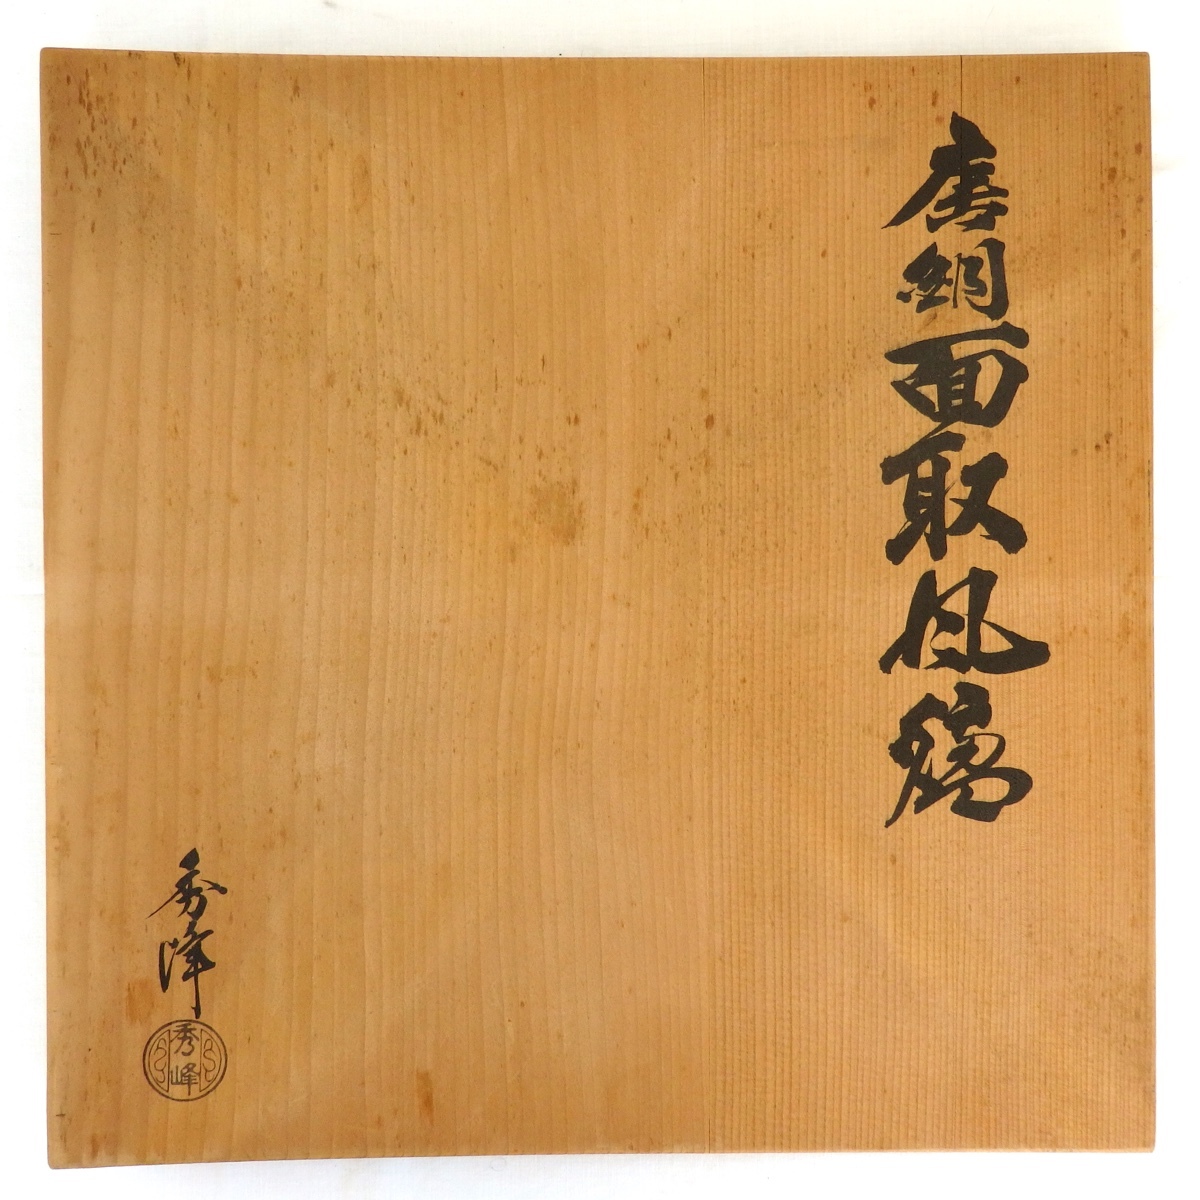 唐銅面取風爐
秀峰
秀峰